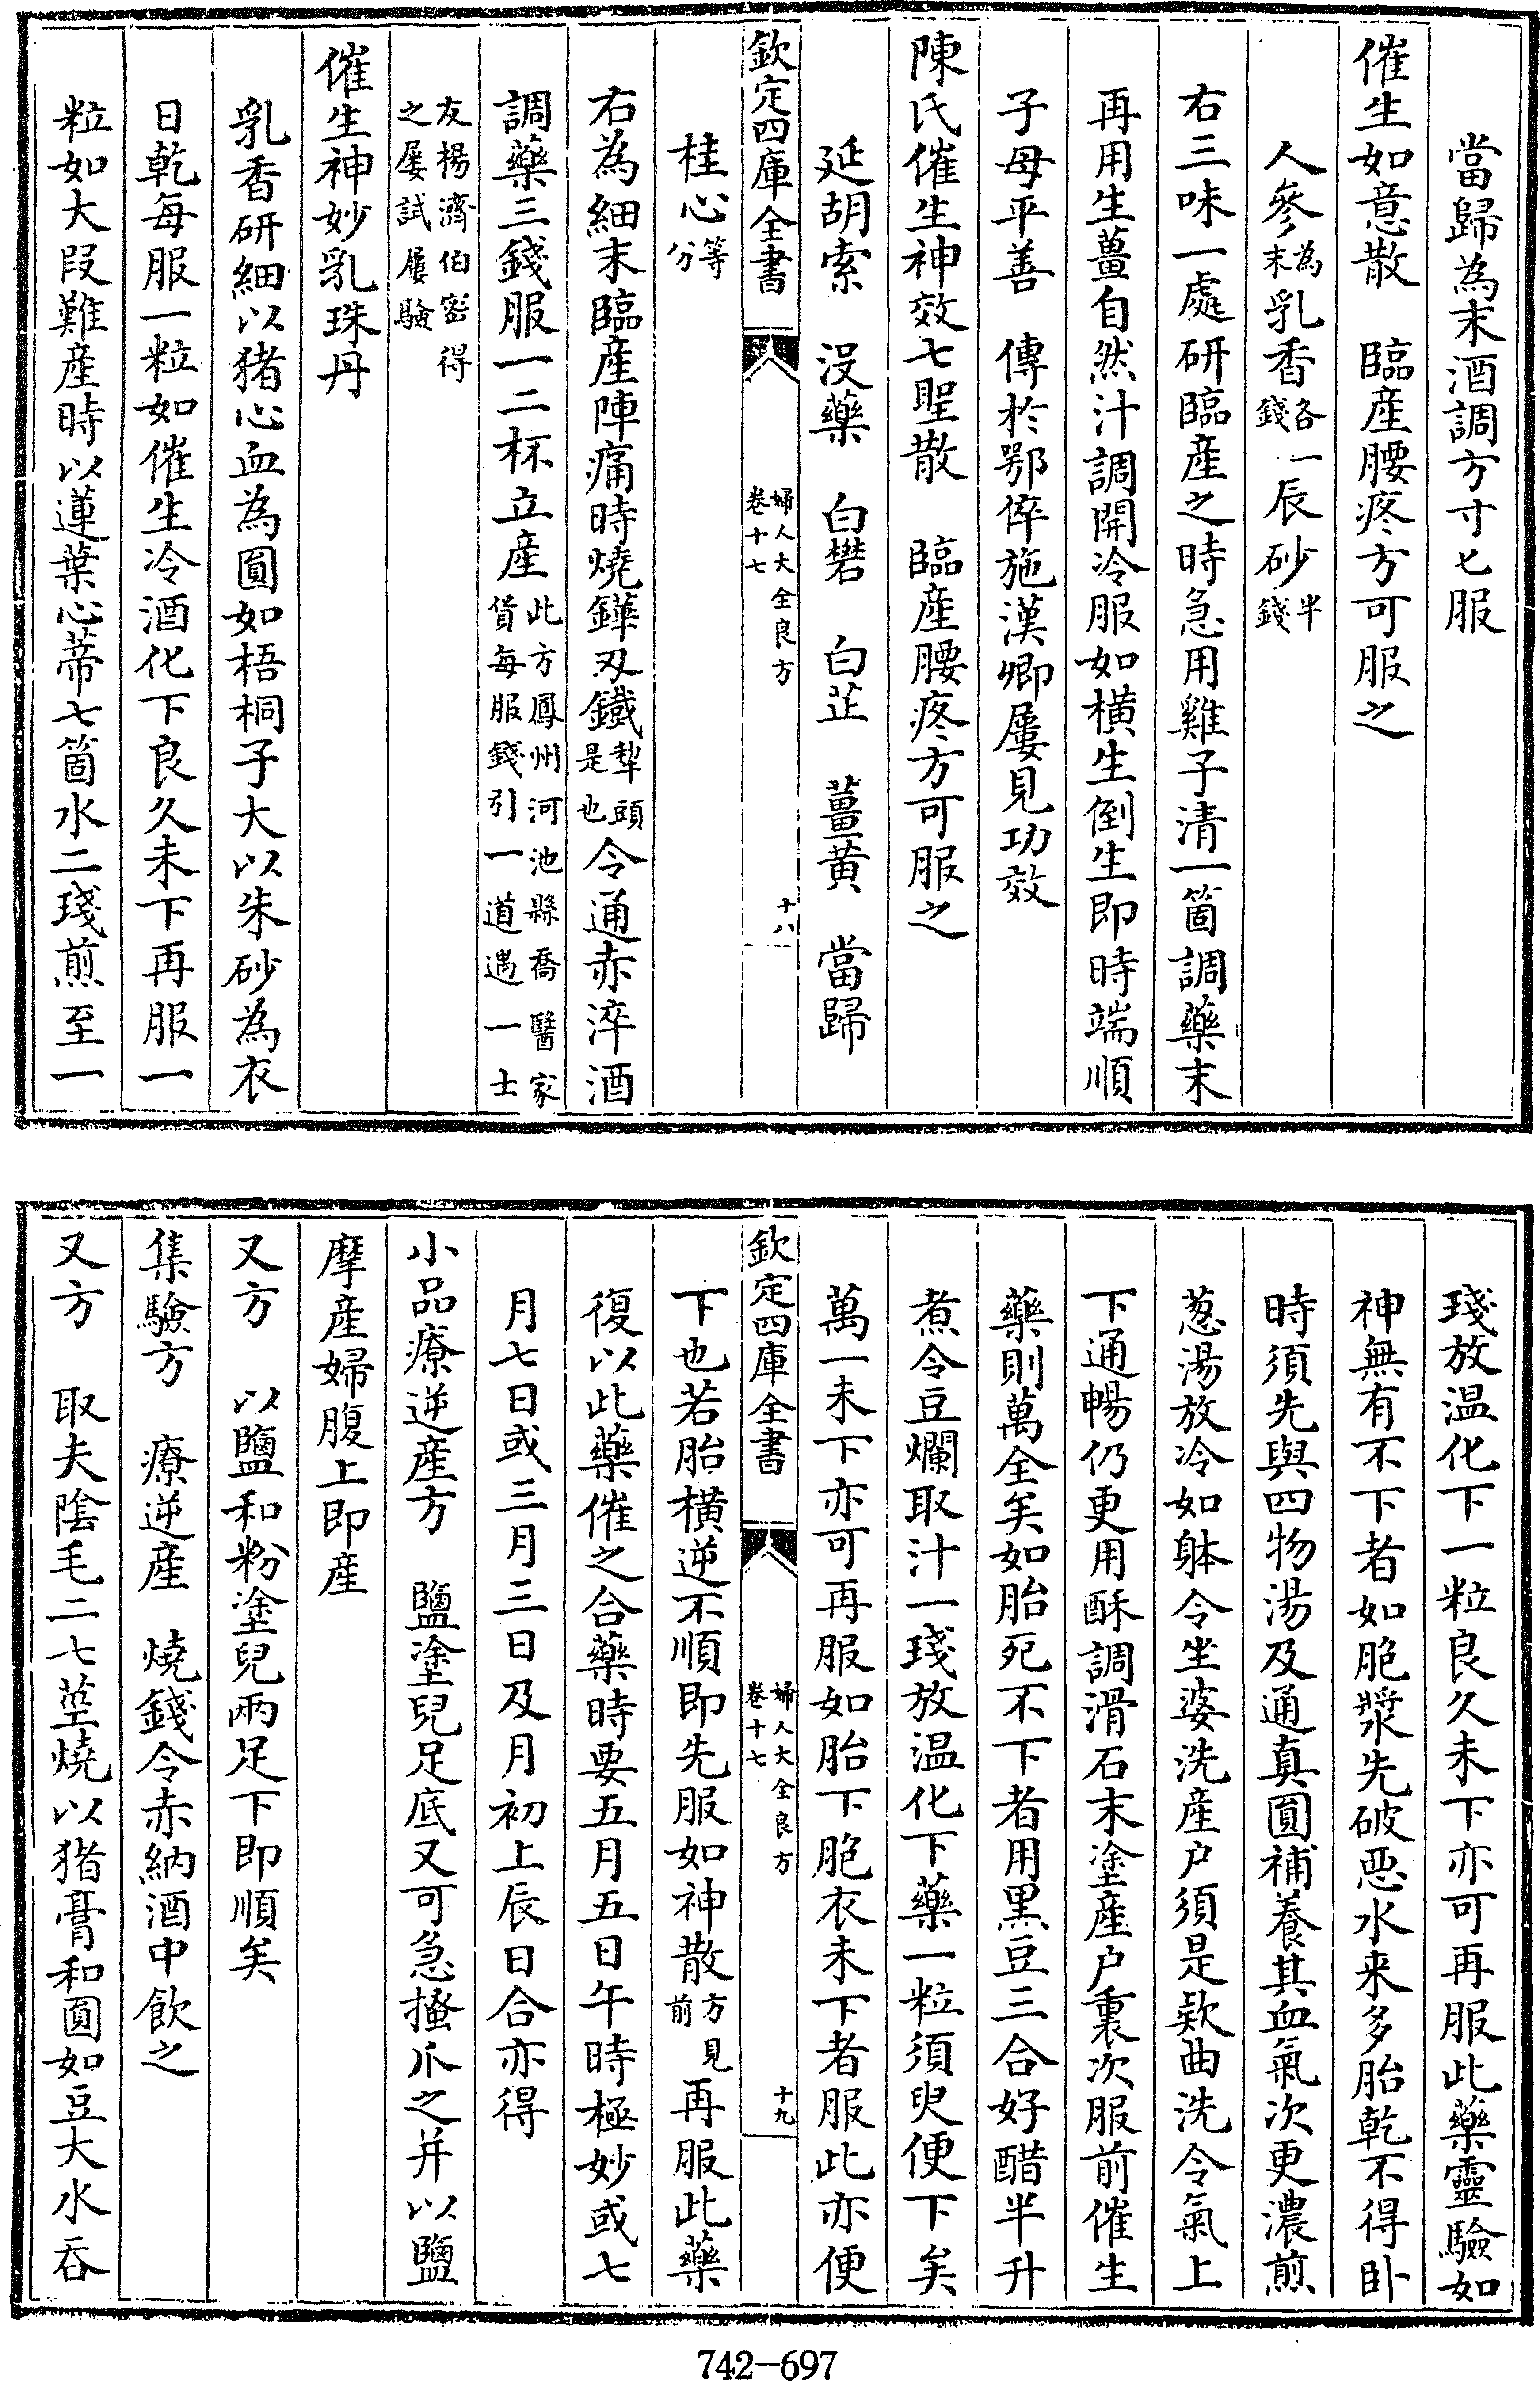 當歸為末酒調方寸匕服
催生如意散　臨産腰疼方可服之
人參為末乳香各一錢辰砂半錢
右三味一處研臨産之時急用雞子清一箇調藥末
再用生薑自然汁調開冷服如橫生倒生即時端順
子母平善　傳於鄂倅施漢卿屢見功效
陳氏催生神效七聖散　臨産腰疼方可服之
延胡索　没藥　白礬　白芷　薑黄　當歸
欽定四庫全書　婦人大全良方卷十七　十八
桂心等分
右為細末臨産陣痛時燒鏵刃鐵犂頭是也令通赤淬酒
調藥三錢服一二杯立産此方鳳州河池縣喬醫家貨每服錢引一道遇一士
友楊濟伯密得之屢試屢驗
催生神妙乳珠丹
乳香研細以猪心血為圓如梧桐子大以朱砂為衣
日乾每服一粒如催生冷酒化下良久未下再服一
粒如大段難産時以蓮葉心蒂七箇水二琖煎至一
琖放温化下一粒良久未下亦可再服此藥靈驗如
神無有不下者如胞漿先破惡水来多胎乾不得卧
時須先與四物湯及通真圓補養其血氣次更濃煎
葱湯放冷如躰令坐婆洗産户須是欵曲洗令氣上
下通暢仍更用酥調滑石末塗産户裏次服前催生
藥則萬全矣如胎死不下者用黑豆三合好醋半升
煮令豆爛取汁一琖放温化下藥一粒須臾便下矣
萬一未下亦可再服如胎下胞衣未下者服此亦便
欽定四庫全書　婦人大全良方卷十七　十九
下也若胎橫逆不順即先服如神散方見前再服此藥
復以此藥催之合藥時要五月五日午時極妙或七
月七日或三月三日及月初上辰日合亦得
小品療逆産方　鹽塗兒足底又可急搔爪之并以鹽
摩産婦腹上即産
又方　以鹽和粉塗兒兩足下即順矣
集驗方　療逆産　燒錢令赤納酒中飲之
又方　取夫陰毛二七莖燒以猪膏和圓如豆大水吞
742—697